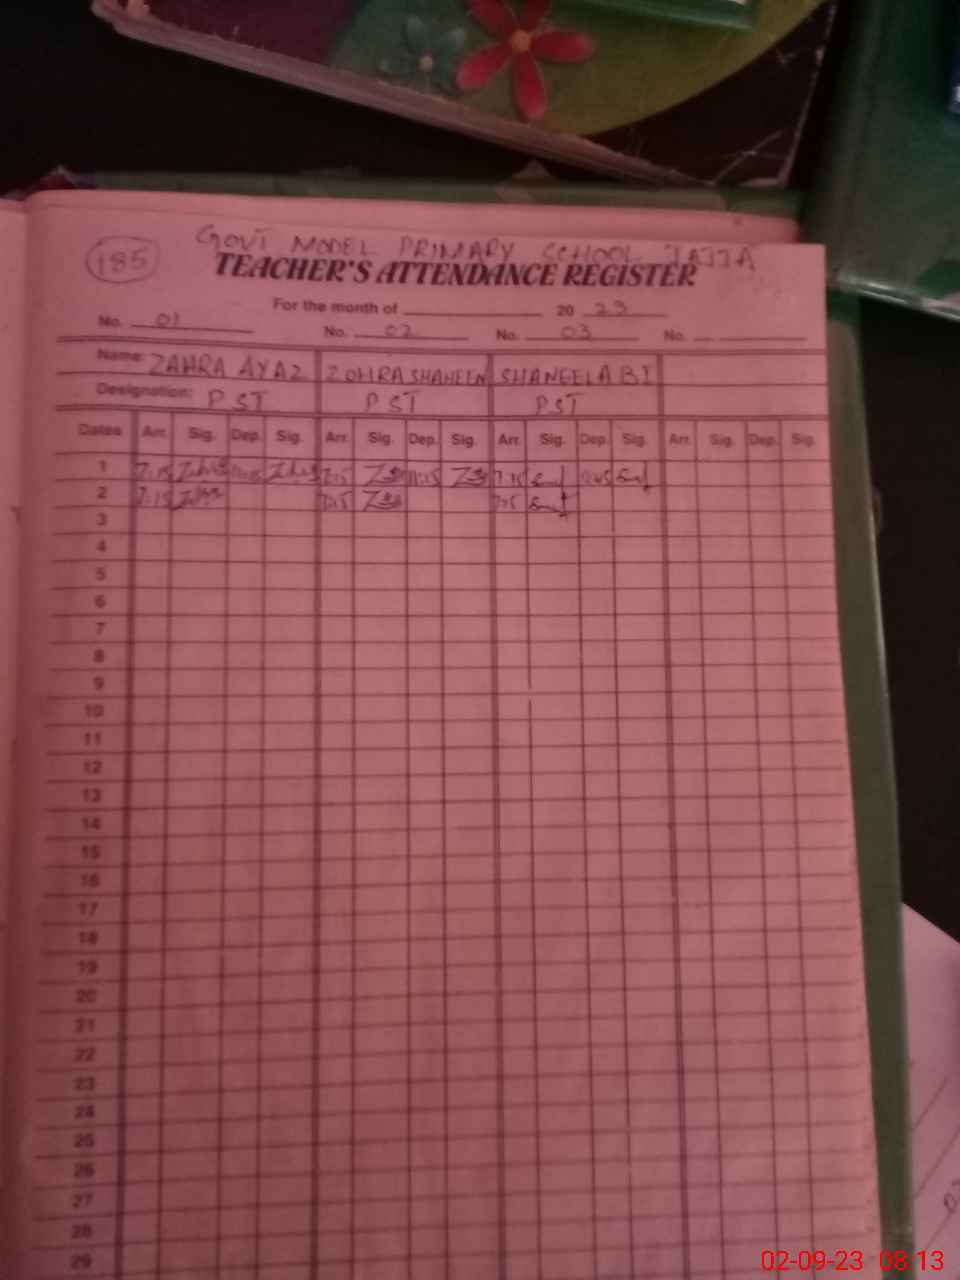 185
GOVT MODEL PRIMARY SCHOOL JAJJA
TEACHER'S ATTENDANCE REGISTER
For the month of 20 23
No. 01 No. 02 No. 03 No.
Name: ZAHRA AYAZ ZOHRA SHAHEEN SHANEELA BI
Designation: PST PST PST
Dates Arr. Sig. Dep. Sig. Arr. Sig. Dep. Sig. Arr. Sig. Dep. Sig. Arr. Sig. Dep. Sig.
1 7:15 7:15 7:15
2 7:15 7:15 7:15
3
4
5
6
7
8
9
10
11
12
13
14
15
16
17
18
19
20
21
22
23
24
25
26
27
28
29
02-09-23 08:13